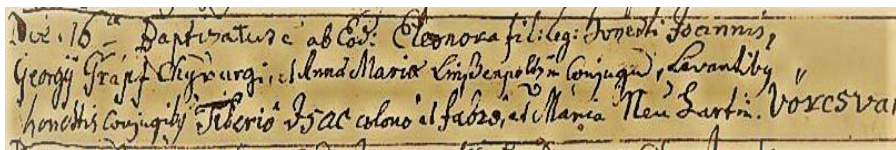 Die 16ta Baptizatur ē ab Eod: Eleonora fil: leg: honesti Joannis,
Georgij Grapf Chyrurgi, et Anna Maria Conjugū, Levantibꝫ
honestis conjugibꝫ Tiberio Isac colono et fabro, et Maria Neu Vörösvá